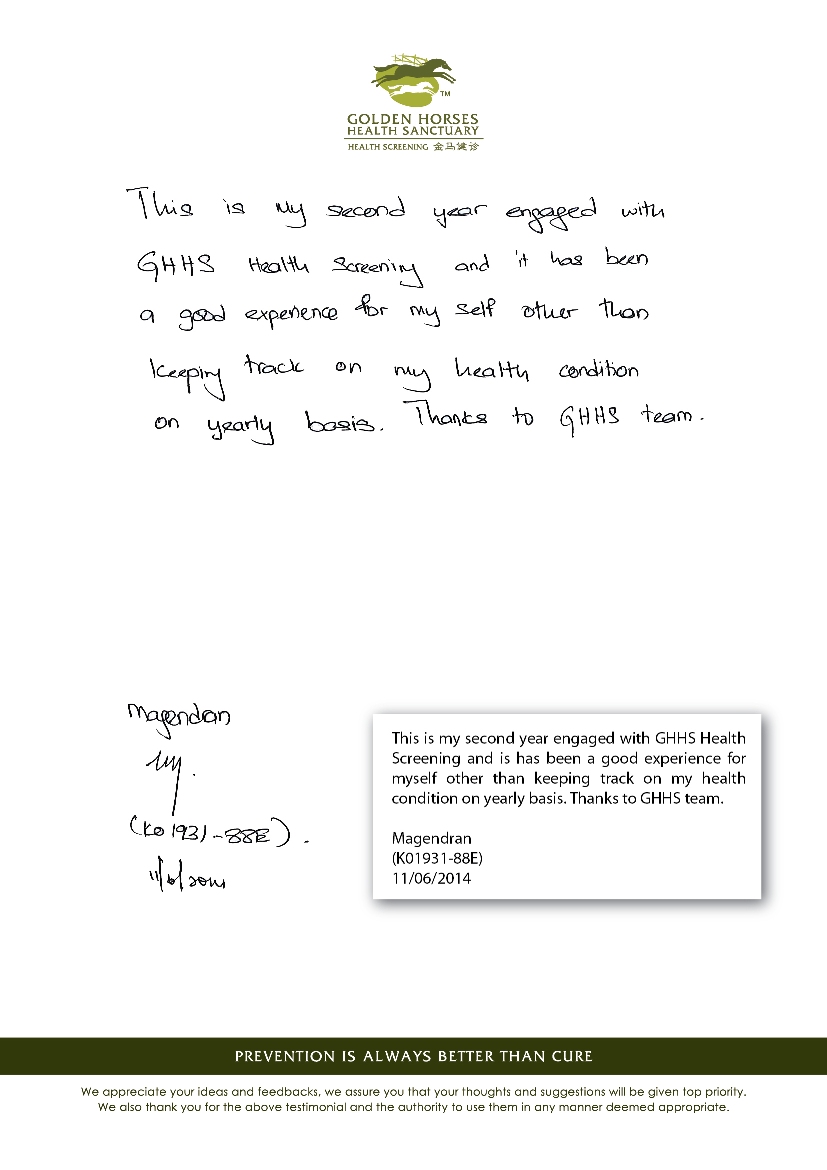 TM
GOLDEN HORSES
HEALTH SANCTUARY
HEALTH SCREENING 金马健诊
This is my second year engaged with
GHHS Health Screening and it has been
a good experience for my self other than
keeping track on my health condition
on yearly basis. Thanks to GHHS team.
Magendran
(K01931-88E).
11/6/2014
This is my second year engaged with GHHS Health
Screening and is has been a good experience for
myself other than keeping track on my health
condition on yearly basis. Thanks to GHHS team.
Magendran
(K01931-88E)
11/06/2014
PREVENTION IS ALWAYS BETTER THAN CURE
We appreciate your ideas and feedbacks, we assure you that your thoughts and suggestions will be given top priority.
We also thank you for the above testimonial and the authority to use them in any manner deemed appropriate.